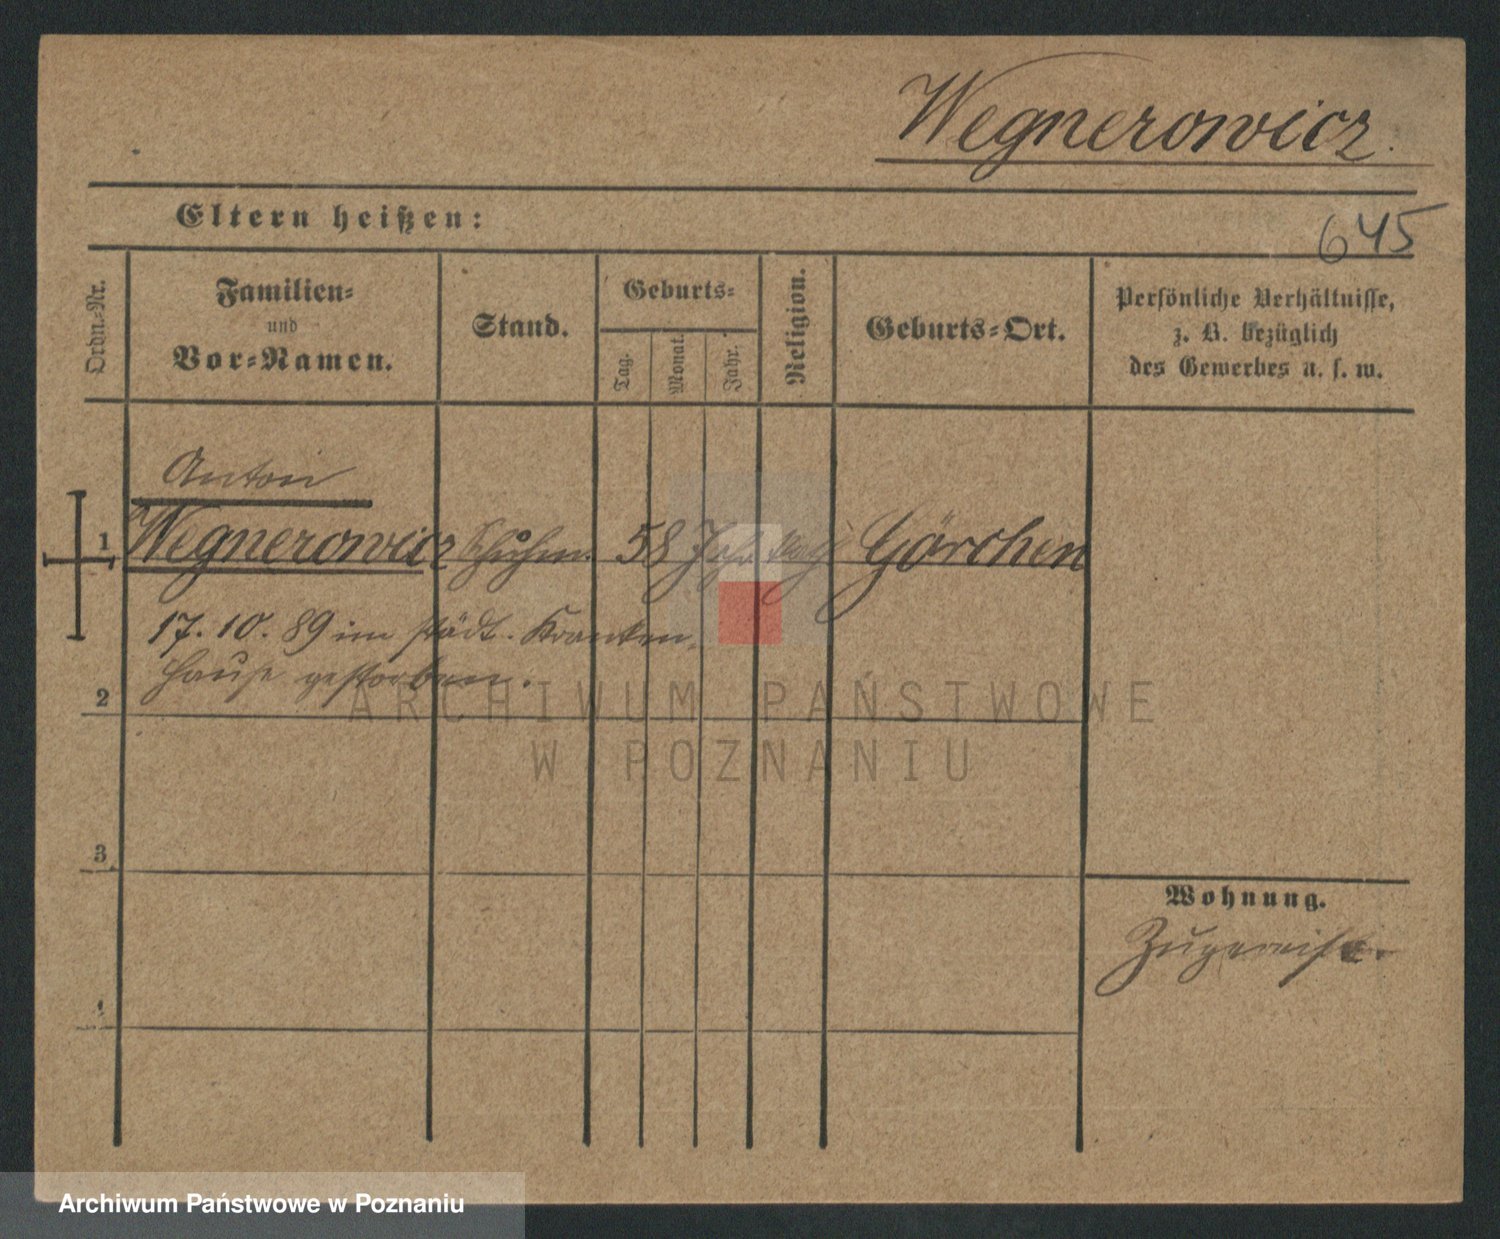 Wegnerowicz.
Eltern heißen:
645
Ordn.-Nr.
Familien-
und
Vor-Namen.
Stand.
Geburts-
Tag.
Monat.
Jahr.
Religion.
Geburts-Ort.
Persönliche Verhältnisse,
z. B. bezüglich
des Gewerbes u. s. w.
Anton
1 Wegnerowicz Schuhm. 58 Jahr kath Görchen
17. 10. 89 im städt. Kranken-
hause gestorben.
2
3
4
Wohnung.
Zugereist.
ARCHIWUM PAŃSTWOWE
W POZNANIU
Archiwum Państwowe w Poznaniu